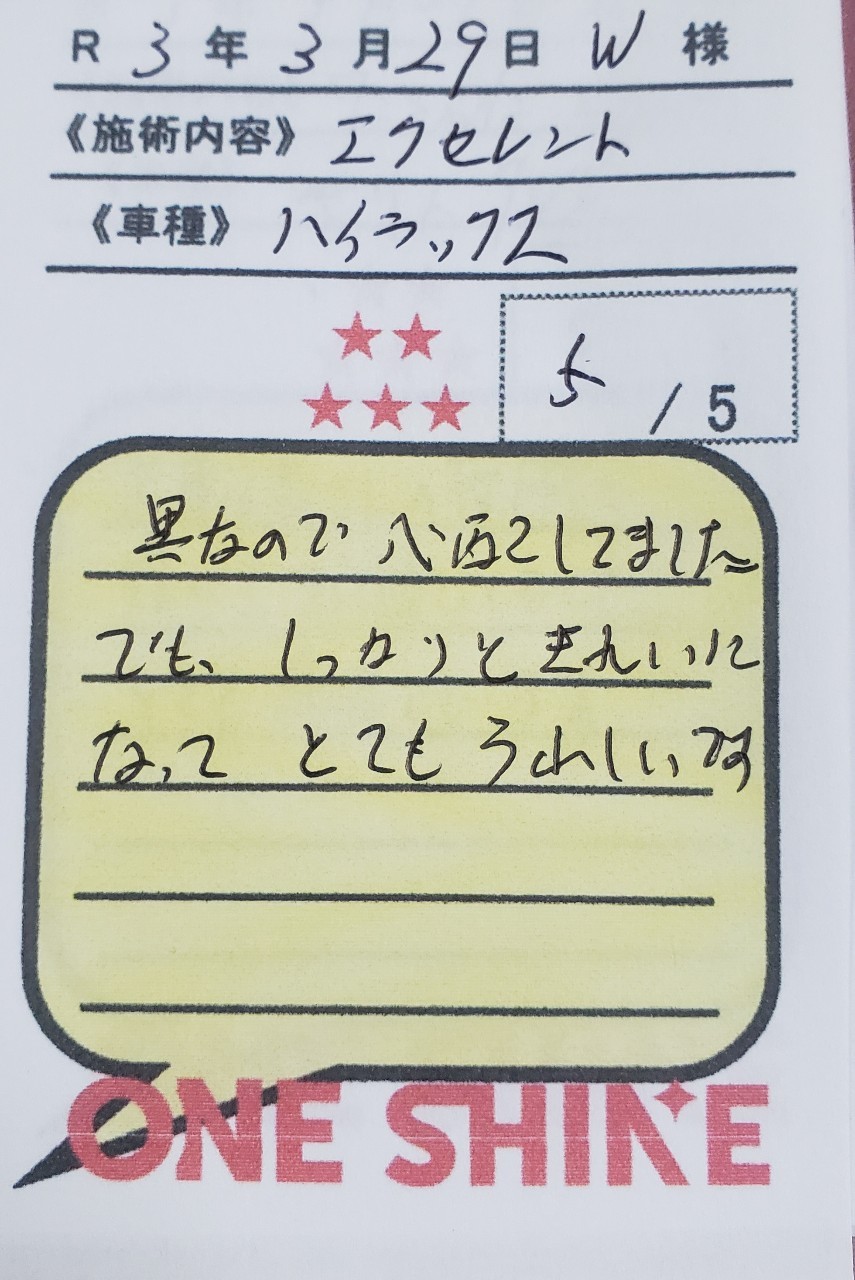 R 3年3月29日 W 様
《施術内容》 エクセレント
《車種》 ハイラックス
5 / 5
黒なので 心配してました
でも、しっかりときれいに
なって とても うれしいです
ONE SHINE